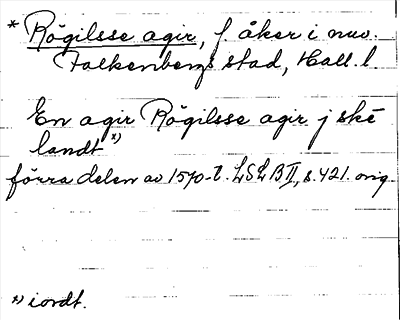 * Rögilsse agir, f. åker i nuv.
Falkenbergs stad, Hall. l
En agir Rögilsse agir j skē
landt *)
förra delen av 1570-t. LSEB II, s. 421. orig.
*) iordt.